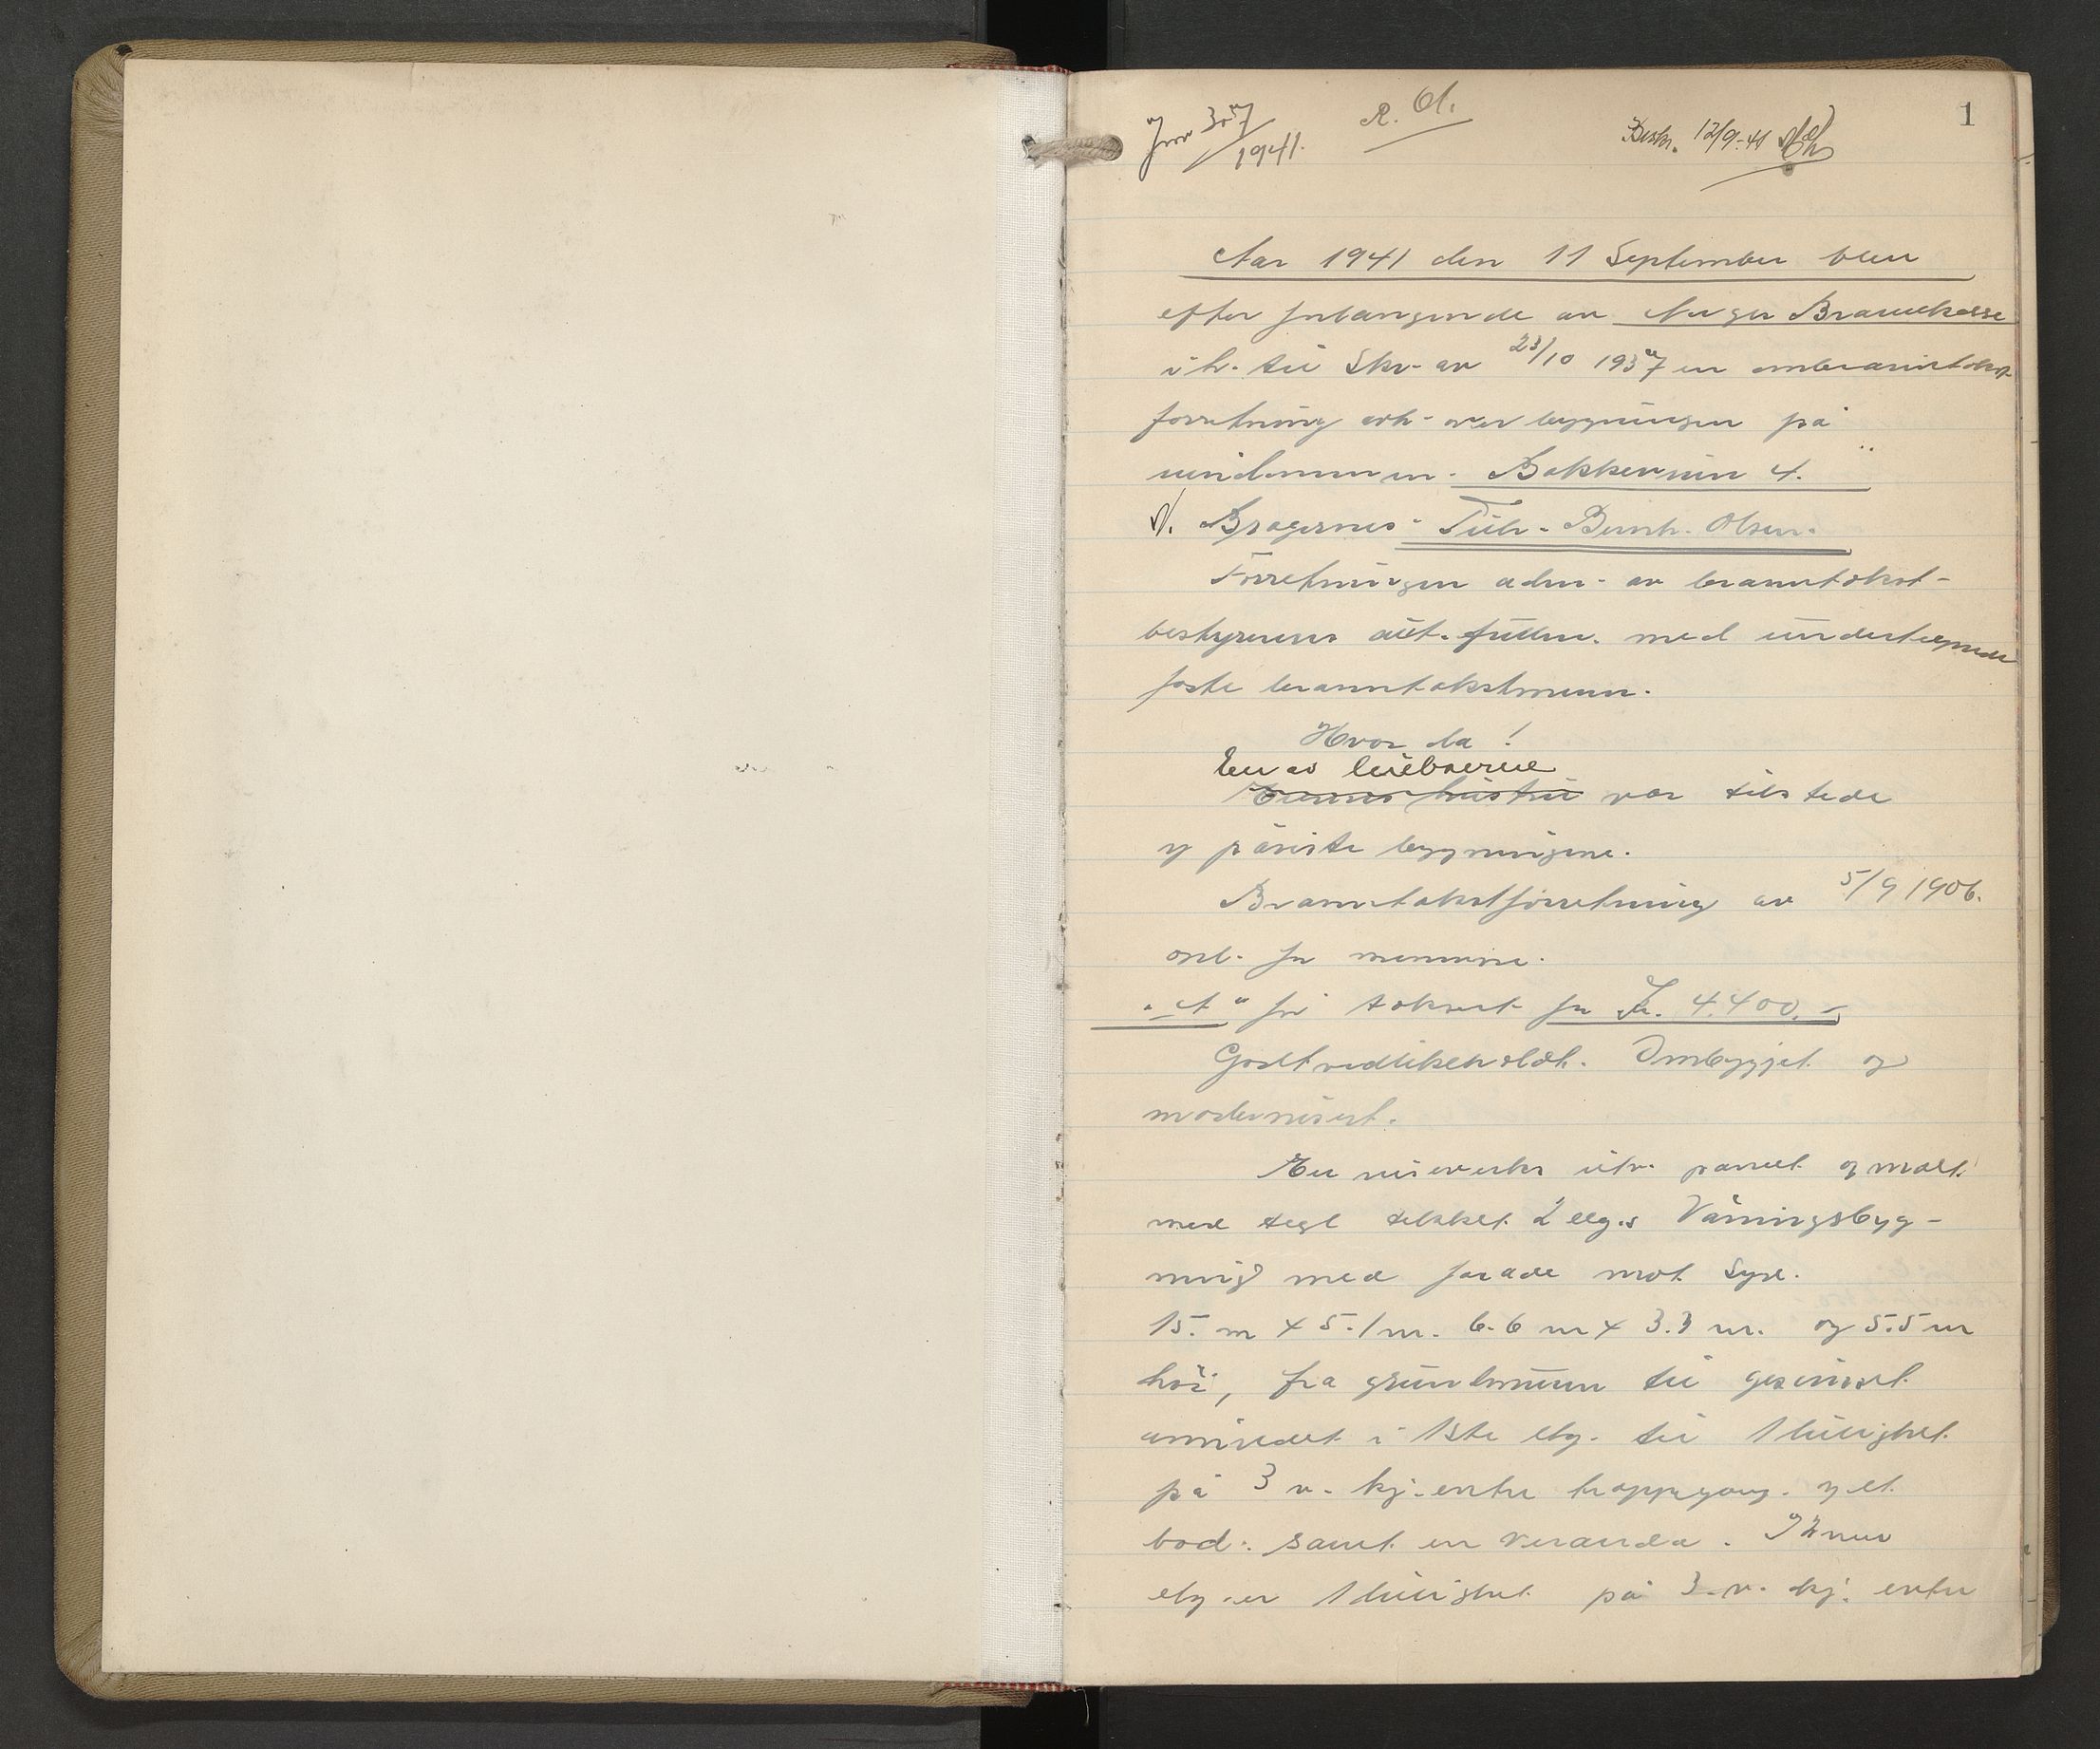 1
Jnr 357/1941. R. Ol. Beskr. 12/9-41
Aar 1941 den 11 September blev
efter forlangende av Norges Brannkasse
i h. til Skr. av 23/10 1937 en ombranntakst
forretning avh. over bygningen på
eiendommen. Bakkersvin 4.
N. Bragernes. Tilh. Bernh. Olsen.
Forretningen adm. av branntakst-
bestyrerens aut. fullm. med undertegnede
faste branntakstmenn.
Hvor da!
En av leieboerne
Eierens hustru var tilstede
og påviste bygningene.
Branntakstforretning av 5/9 1906.
opl. for mennene.
"A" før takseret for Kr. 4.400,-
Godt vedlikeholdt. Ombygget og
modernisert.
En utv. panelt og malt
med tegl tekket 2 etg.s Våningsbyg-
ning med fasade mot Syd.
15. m x 5.1 m. 6.6 m x 3.3 m. og 5.5 m
høi, fra grunnmuren til gesimset
innredet i 1ste etg. til 1 leilighet
på 3 v. kj. entre trappegang. og et
bod. samt en veranda. I 2nen
etg. er 1 leilighet på 3. v. kj. entre